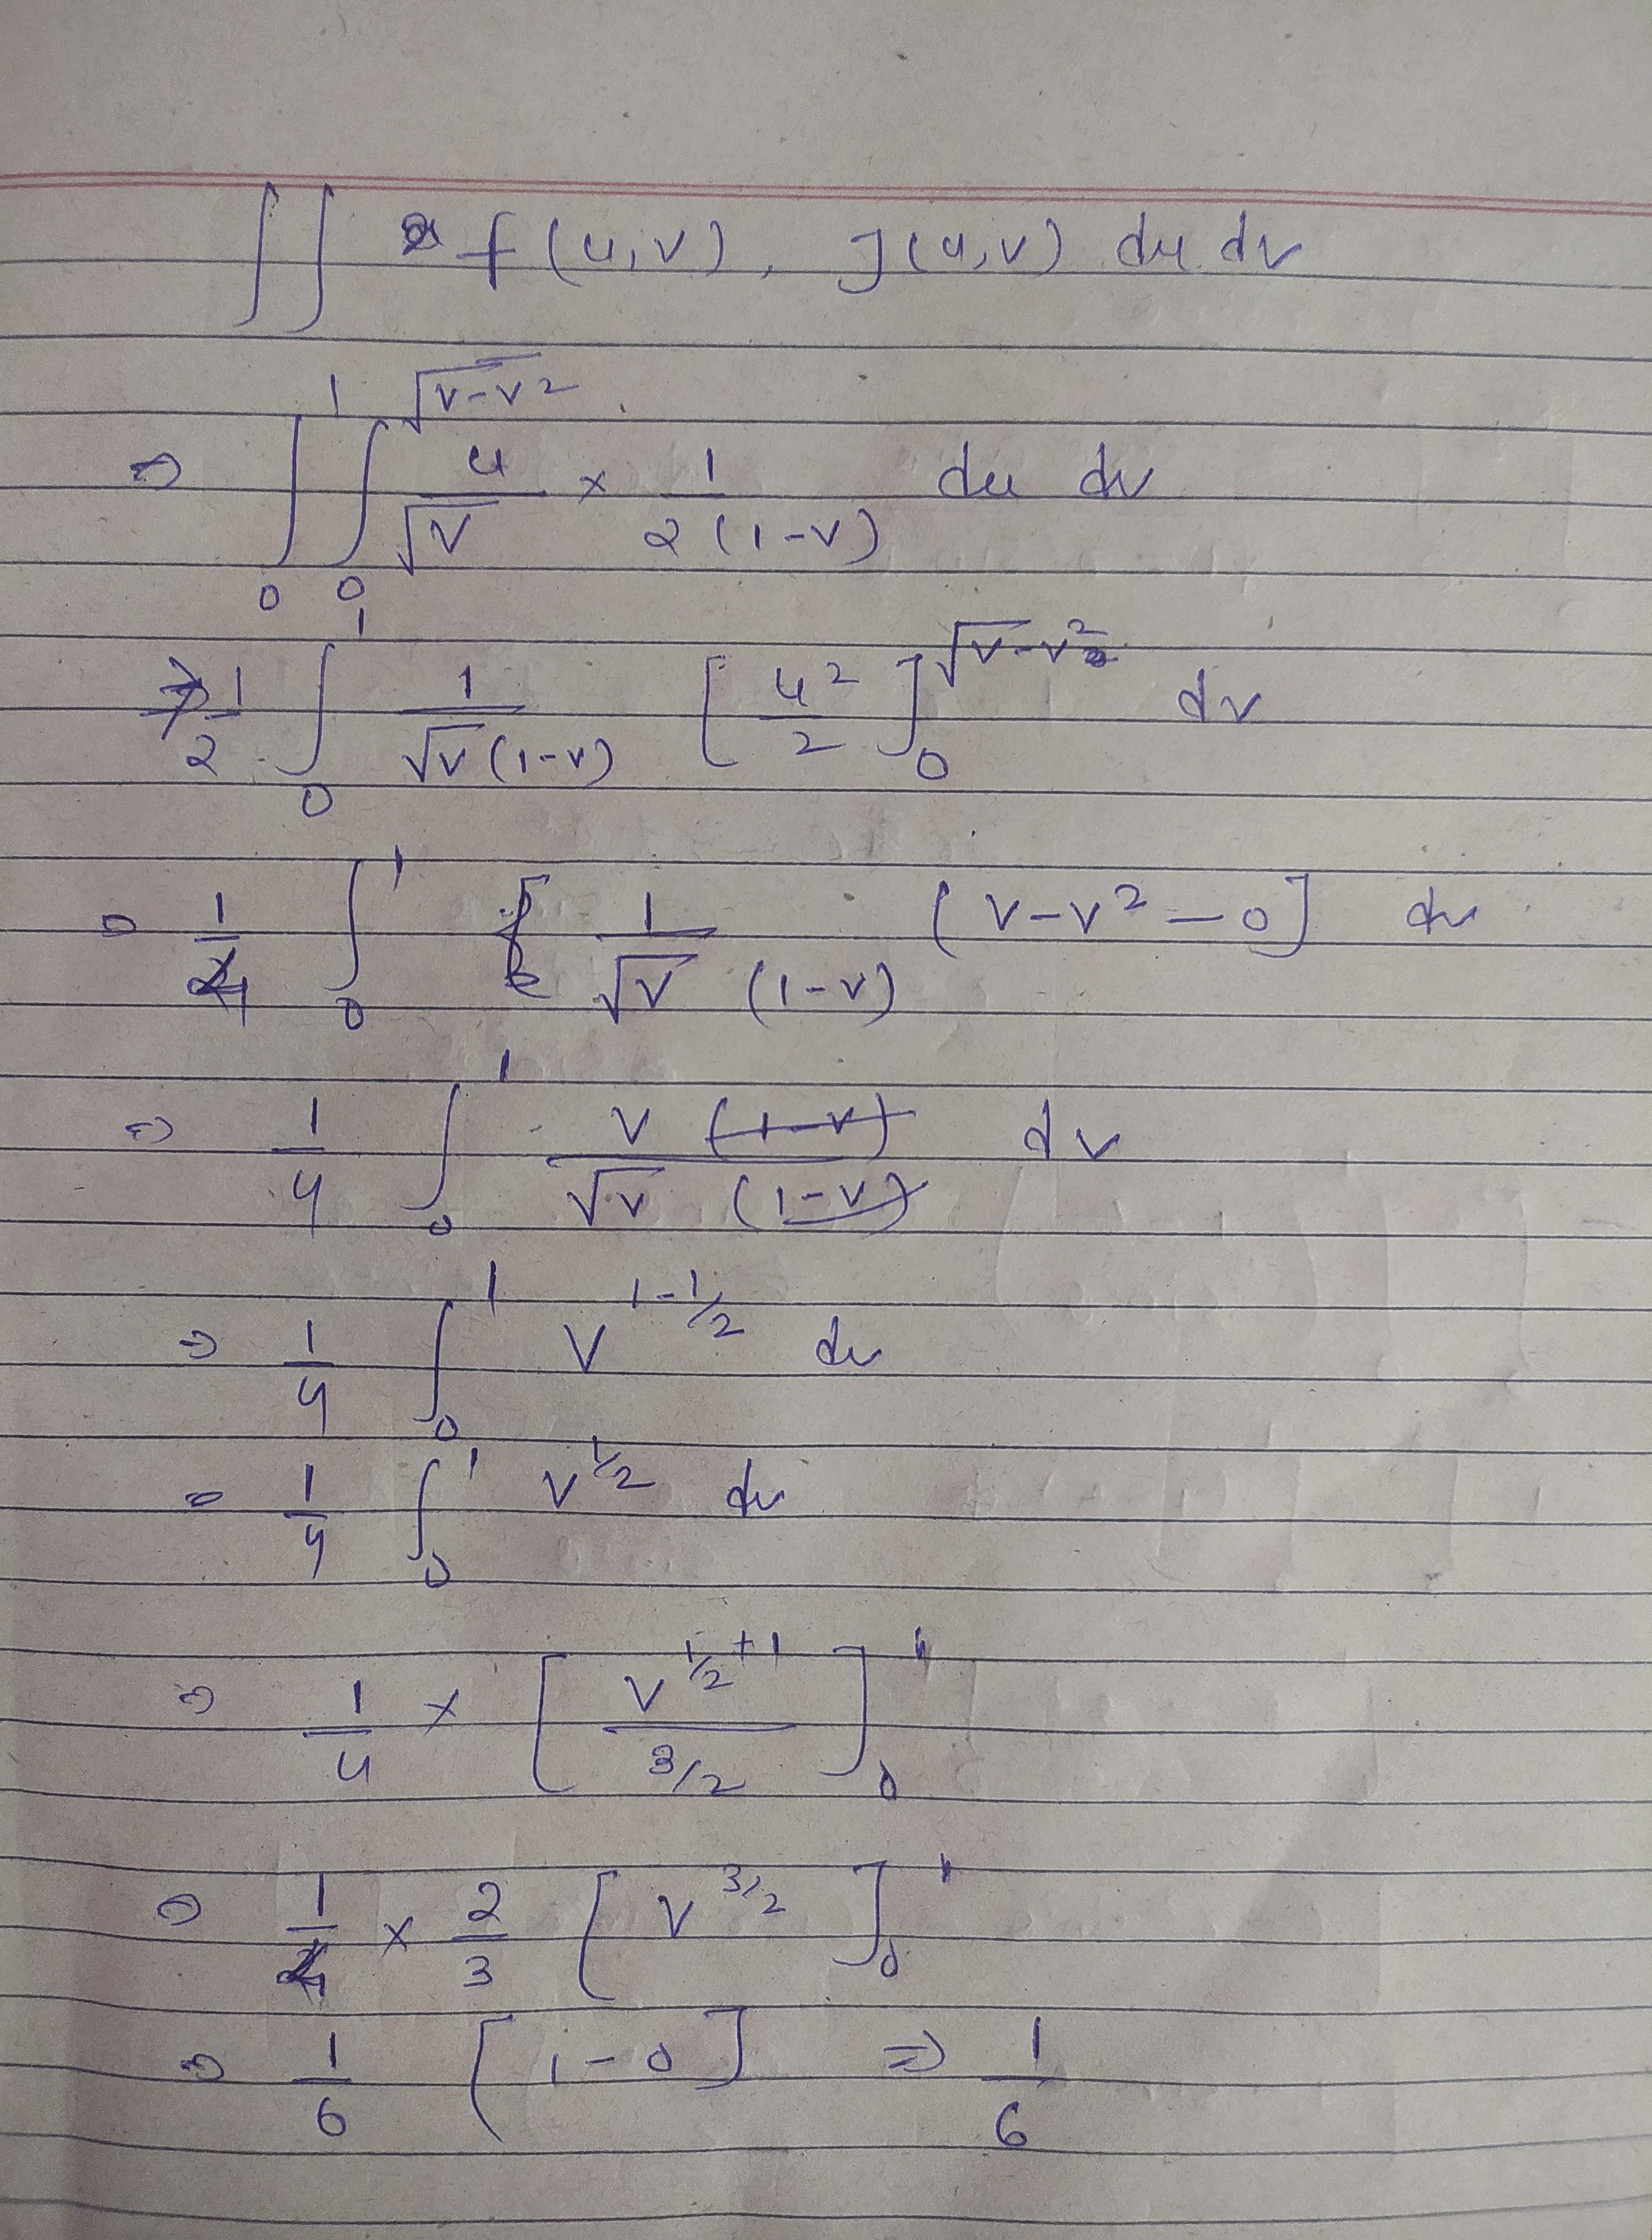 ∫∫ f(u,v), J(u,v) du dv
⇒ ∫₀¹ ∫₀^√(v-v²) u/√v × 1/2(1-v) du dv
⇒ 1/2 ∫₀¹ 1/√v(1-v) [u²/2]₀^√(v-v²) dv
⇒ 1/4 ∫₀¹ 1/√v (1-v) [v-v²-0] dv
⇒ 1/4 ∫₀¹ v (1-v)/√v (1-v) dv
⇒ 1/4 ∫₀¹ v^(1-1/2) dv
= 1/4 ∫₀¹ v^(1/2) dv
⇒ 1/4 × [v^(1/2+1)/(3/2)]₀¹
⇒ 1/4 × 2/3 [v^(3/2)]₀¹
⇒ 1/6 [1-0] ⇒ 1/6